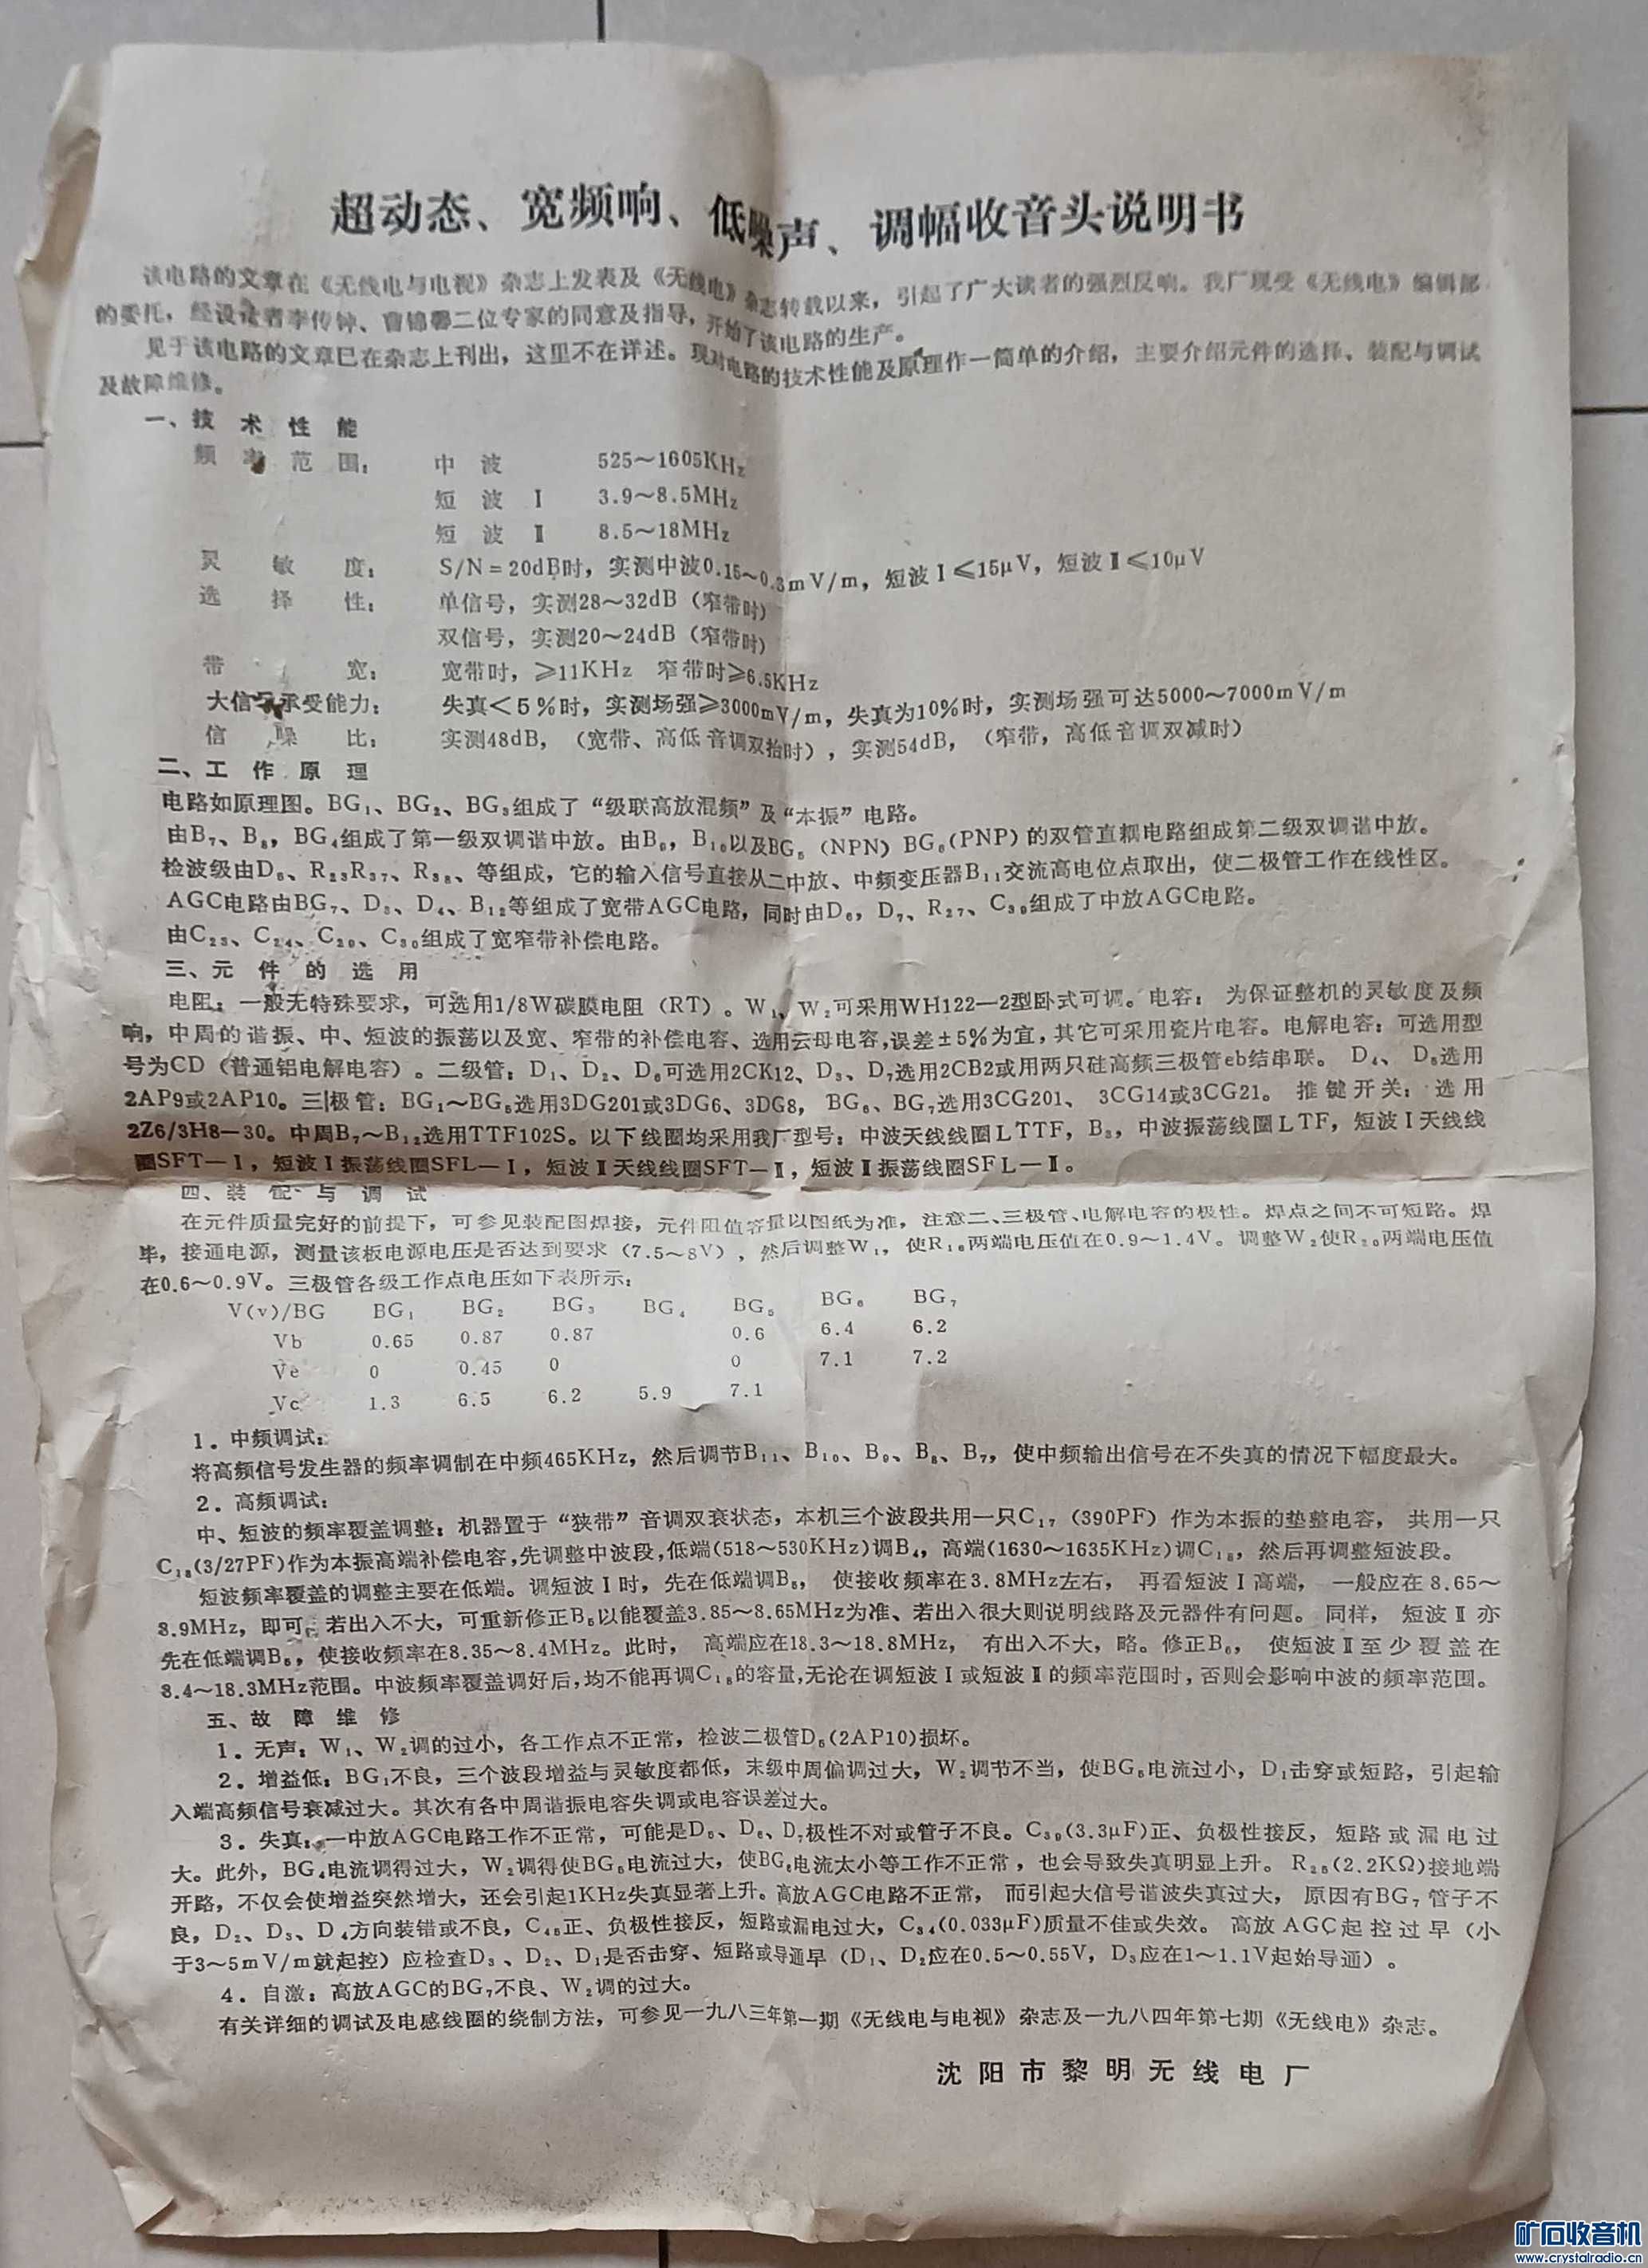 超动态、宽频响、低噪声、调幅收音头说明书
该电路的文章在《无线电与电视》杂志上发表及《无线电》杂志转载以来，引起了广大读者的强烈反响。我厂现受《无线电》编辑部
的委托，经设计者李传钟、曹锦馨二位专家的同意及指导，开始了该电路的生产。
见于该电路的文章已在杂志上刊出，这里不在详述。现对电路的技术性能及原理作一简单的介绍，主要介绍元件的选择、装配与调试
及故障维修。
一、技术性能
频率范围： 中波 525～1605KHz
短波Ⅰ 3.9～8.5MHz
短波Ⅱ 8.5～18MHz
灵敏度： S/N＝20dB时，实测中波0.15～0.3mV/m，短波Ⅰ≤15μV，短波Ⅱ≤10μV
选择性： 单信号，实测28～32dB（窄带时）
双信号，实测20～24dB（窄带时）
带宽： 宽带时，≥11KHz 窄带时≥6.5KHz
大信号承受能力： 失真＜5％时，实测场强≥3000mV/m，失真为10％时，实测场强可达5000～7000mV/m
信噪比： 实测48dB，（宽带、高低音调双抬时），实测54dB，（窄带，高低音调双减时）
二、工作原理
电路如原理图。BG₁、BG₂、BG₃组成了“级联高放混频”及“本振”电路。
由B₇、B₈，BG₄组成了第一级双调谐中放。由B₉，B₁₀以及BG₅（NPN）BG₆(PNP)的双管直耦电路组成第二级双调谐中放。
检波级由D₅、R₂₃R₃₇、R₃₈、等组成，它的输入信号直接从二中放、中频变压器B₁₁交流高电位点取出，使二极管工作在线性区。
AGC电路由BG₇、D₃、D₄、B₁₂等组成了宽带AGC电路，同时由D₆，D₇、R₂₇、C₃₉组成了中放AGC电路。
由C₂₃、C₂₄、C₂₉、C₃₀组成了宽窄带补偿电路。
三、元件的选用
电阻：一般无特殊要求，可选用1/8W碳膜电阻（RT）。W₁、W₂可采用WH122—2型卧式可调。电容： 为保证整机的灵敏度及频
响，中周的谐振、中、短波的振荡以及宽、窄带的补偿电容、选用云母电容，误差±5％为宜，其它可采用瓷片电容。电解电容：可选用型
号为CD（普通铝电解电容）。二级管：D₁、D₂、D₆可选用2CK12、D₃、D₇选用2CB2或用两只硅高频三极管eb结串联。D₄、D₅选用
2AP9或2AP10。三极管：BG₁～BG₅选用3DG201或3DG6、3DG8，BG₆、BG₇选用3CG201、3CG14或3CG21。推键开关：选用
2Z6/3H8—30。中周B₇～B₁₂选用TTF102S。以下线圈均采用我厂型号：中波天线线圈LTTF，B₃，中波振荡线圈LTF，短波Ⅰ天线线
圈SFT—Ⅰ，短波Ⅰ振荡线圈SFL—Ⅰ，短波Ⅱ天线线圈SFT—Ⅱ，短波Ⅱ振荡线圈SFL—Ⅱ。
四、装配与调试
在元件质量完好的前提下，可参见装配图焊接，元件阻值容量以图纸为准，注意二、三极管、电解电容的极性。焊点之间不可短路。焊
毕，接通电源，测量该板电源电压是否达到要求（7.5～8V），然后调整W₁，使R₁₆两端电压值在0.9～1.4V。调整W₂使R₂₀两端电压值
在0.6～0.9V。三极管各级工作点电压如下表所示：
V(v)/BG BG₁ BG₂ BG₃ BG₄ BG₅ BG₆ BG₇
Vb 0.65 0.87 0.87 0.6 6.4 6.2
Ve 0 0.45 0 0 7.1 7.2
Vc 1.3 6.5 6.2 5.9 7.1
1．中频调试：
将高频信号发生器的频率调制在中频465KHz，然后调节B₁₁、B₁₀、B₉、B₈、B₇，使中频输出信号在不失真的情况下幅度最大。
2．高频调试：
中、短波的频率覆盖调整：机器置于“狭带”音调双衰状态，本机三个波段共用一只C₁₇（390PF）作为本振的垫整电容，共用一只
C₁₈(3/27PF)作为本振高端补偿电容，先调整中波段，低端(518～530KHz)调B₄，高端(1630～1635KHz)调C₁₈，然后再调整短波段。
短波频率覆盖的调整主要在低端。调短波Ⅰ时，先在低端调B₅，使接收频率在3.8MHz左右，再看短波Ⅰ高端，一般应在8.65～
8.9MHz，即可。若出入不大，可重新修正B₅以能覆盖3.85～8.65MHz为准、若出入很大则说明线路及元器件有问题。同样，短波Ⅱ亦
先在低端调B₆，使接收频率在8.35～8.4MHz。此时，高端应在18.3～18.8MHz，有出入不大，略。修正B₆，使短波Ⅱ至少覆盖在
8.4～18.3MHz范围。中波频率覆盖调好后，均不能再调C₁₈的容量，无论在调短波Ⅰ或短波Ⅱ的频率范围时，否则会影响中波的频率范围。
五、故障维修
1．无声：W₁、W₂调的过小，各工作点不正常，检波二极管D₅(2AP10)损坏。
2．增益低：BG₁不良，三个波段增益与灵敏度都低，末级中周偏调过大，W₂调节不当，使BG₅电流过小，D₁击穿或短路，引起输
入端高频信号衰减过大。其次有各中周谐振电容失调或电容误差过大。
3．失真：一中放AGC电路工作不正常，可能是D₅、D₆、D₇极性不对或管子不良。C₃₉(3.3μF)正、负极性接反，短路或漏电过
大。此外，BG₄电流调得过大，W₂调得使BG₅电流过大，使BG₆电流太小等工作不正常，也会导致失真明显上升。R₂₅(2.2KΩ)接地端
开路，不仅会使增益突然增大，还会引起1KHz失真显著上升。高放AGC电路不正常，而引起大信号谐波失真过大，原因有BG₇管子不
良，D₂、D₃、D₄方向装错或不良，C₄₅正、负极性接反，短路或漏电过大，C₃₄(0.033μF)质量不佳或失效。高放AGC起控过早（小
于3～5mV/m就起控）应检查D₃、D₂、D₁是否击穿、短路或导通早（D₁、D₂应在0.5～0.55V，D₃应在1～1.1V起始导通）。
4．自激：高放AGC的BG₇不良、W₂调的过大。
有关详细的调试及电感线圈的绕制方法，可参见一九八三年第一期《无线电与电视》杂志及一九八四年第七期《无线电》杂志。
沈阳市黎明无线电厂
矿石收音机
www.crystalradio.cn